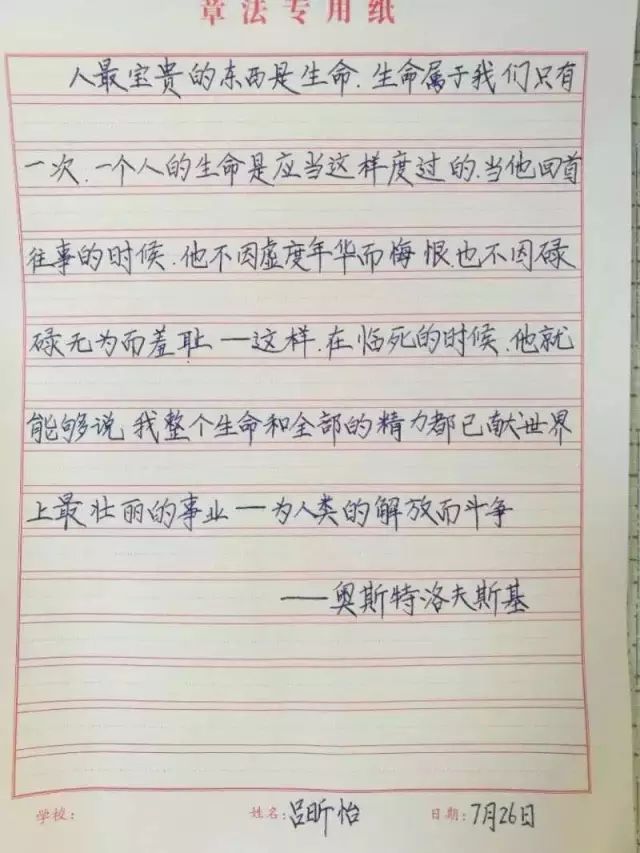 章法专用纸
人最宝贵的东西是生命.生命属于我们只有
一次.一个人的生命是应当这样度过的.当他回首
往事的时候.他不因虚度年华而悔恨.也不因碌
碌无为而羞耻——这样.在临死的时候.他就
能够说.我整个生命和全部的精力都已献世界
上最壮丽的事业——为人类的解放而斗争
——奥斯特洛夫斯基
学校: 姓名:吕昕怡 日期:7月26日